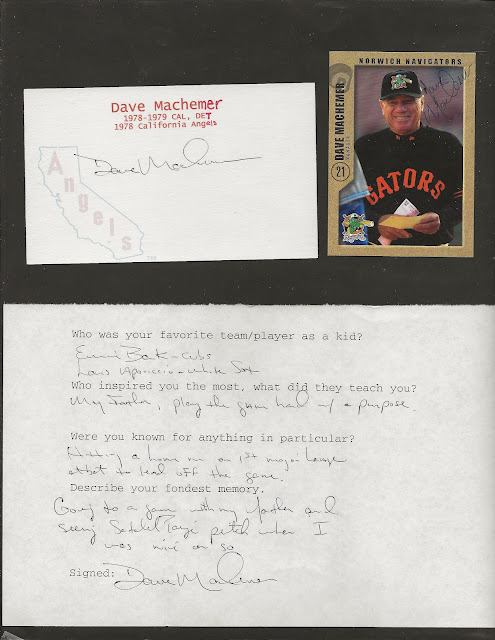 Dave Machemer
1978-1979 CAL, DET
1978 California Angels
Dave Machemer
Angels
TM
NORWICH NAVIGATORS
DAVE MACHEMER
21
GATORS
Who was your favorite team/player as a kid?
Ernie Banks - Cubs
Louis Aparicio - White Sox
Who inspired you the most, what did they teach you?
My Father, play the game hard w/ a purpose.
Were you known for anything in particular?
Hitting a home run on 1st major league
atbat to lead off the game.
Describe your fondest memory.
Going to a game with my father and
seeing Satchel Paige pitch when I
was nine or so
Signed: Dave Machemer